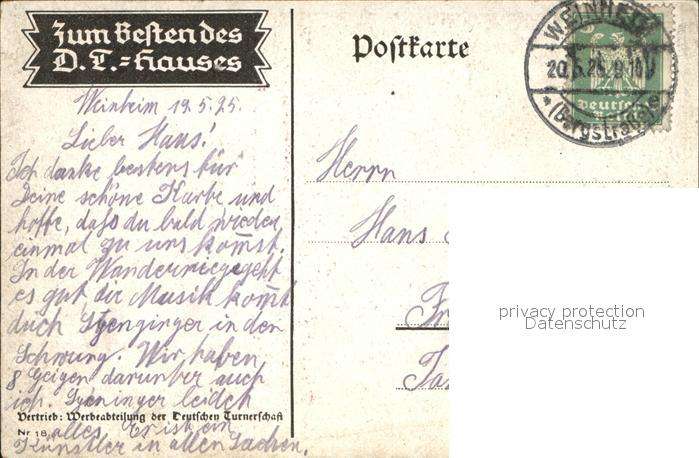 Zum Besten des
D. T.=Hauses
Postkarte
WEINHEIM
20.5.25.9-10V
* (Bergstraße) *
Deutsches
Weinheim 19.5.25.
Lieber Hans!
Ich danke bestens für
Deine schöne Karte und
hoffe, daß du bald wieder
einmal zu uns kom̅st.
In der Wanderriege geht
es gut die Musik kom̅t
duch in den
Schwung. Wir haben
8 Geigen darunter auch
ich. leidet
alles. Er ist ein
Künstler in allen Sachen.
Vertrieb: Werbeabteilung der Deutschen Turnerschaft
Nr 18
Herrn
Hans
privacy protection
Datenschutz